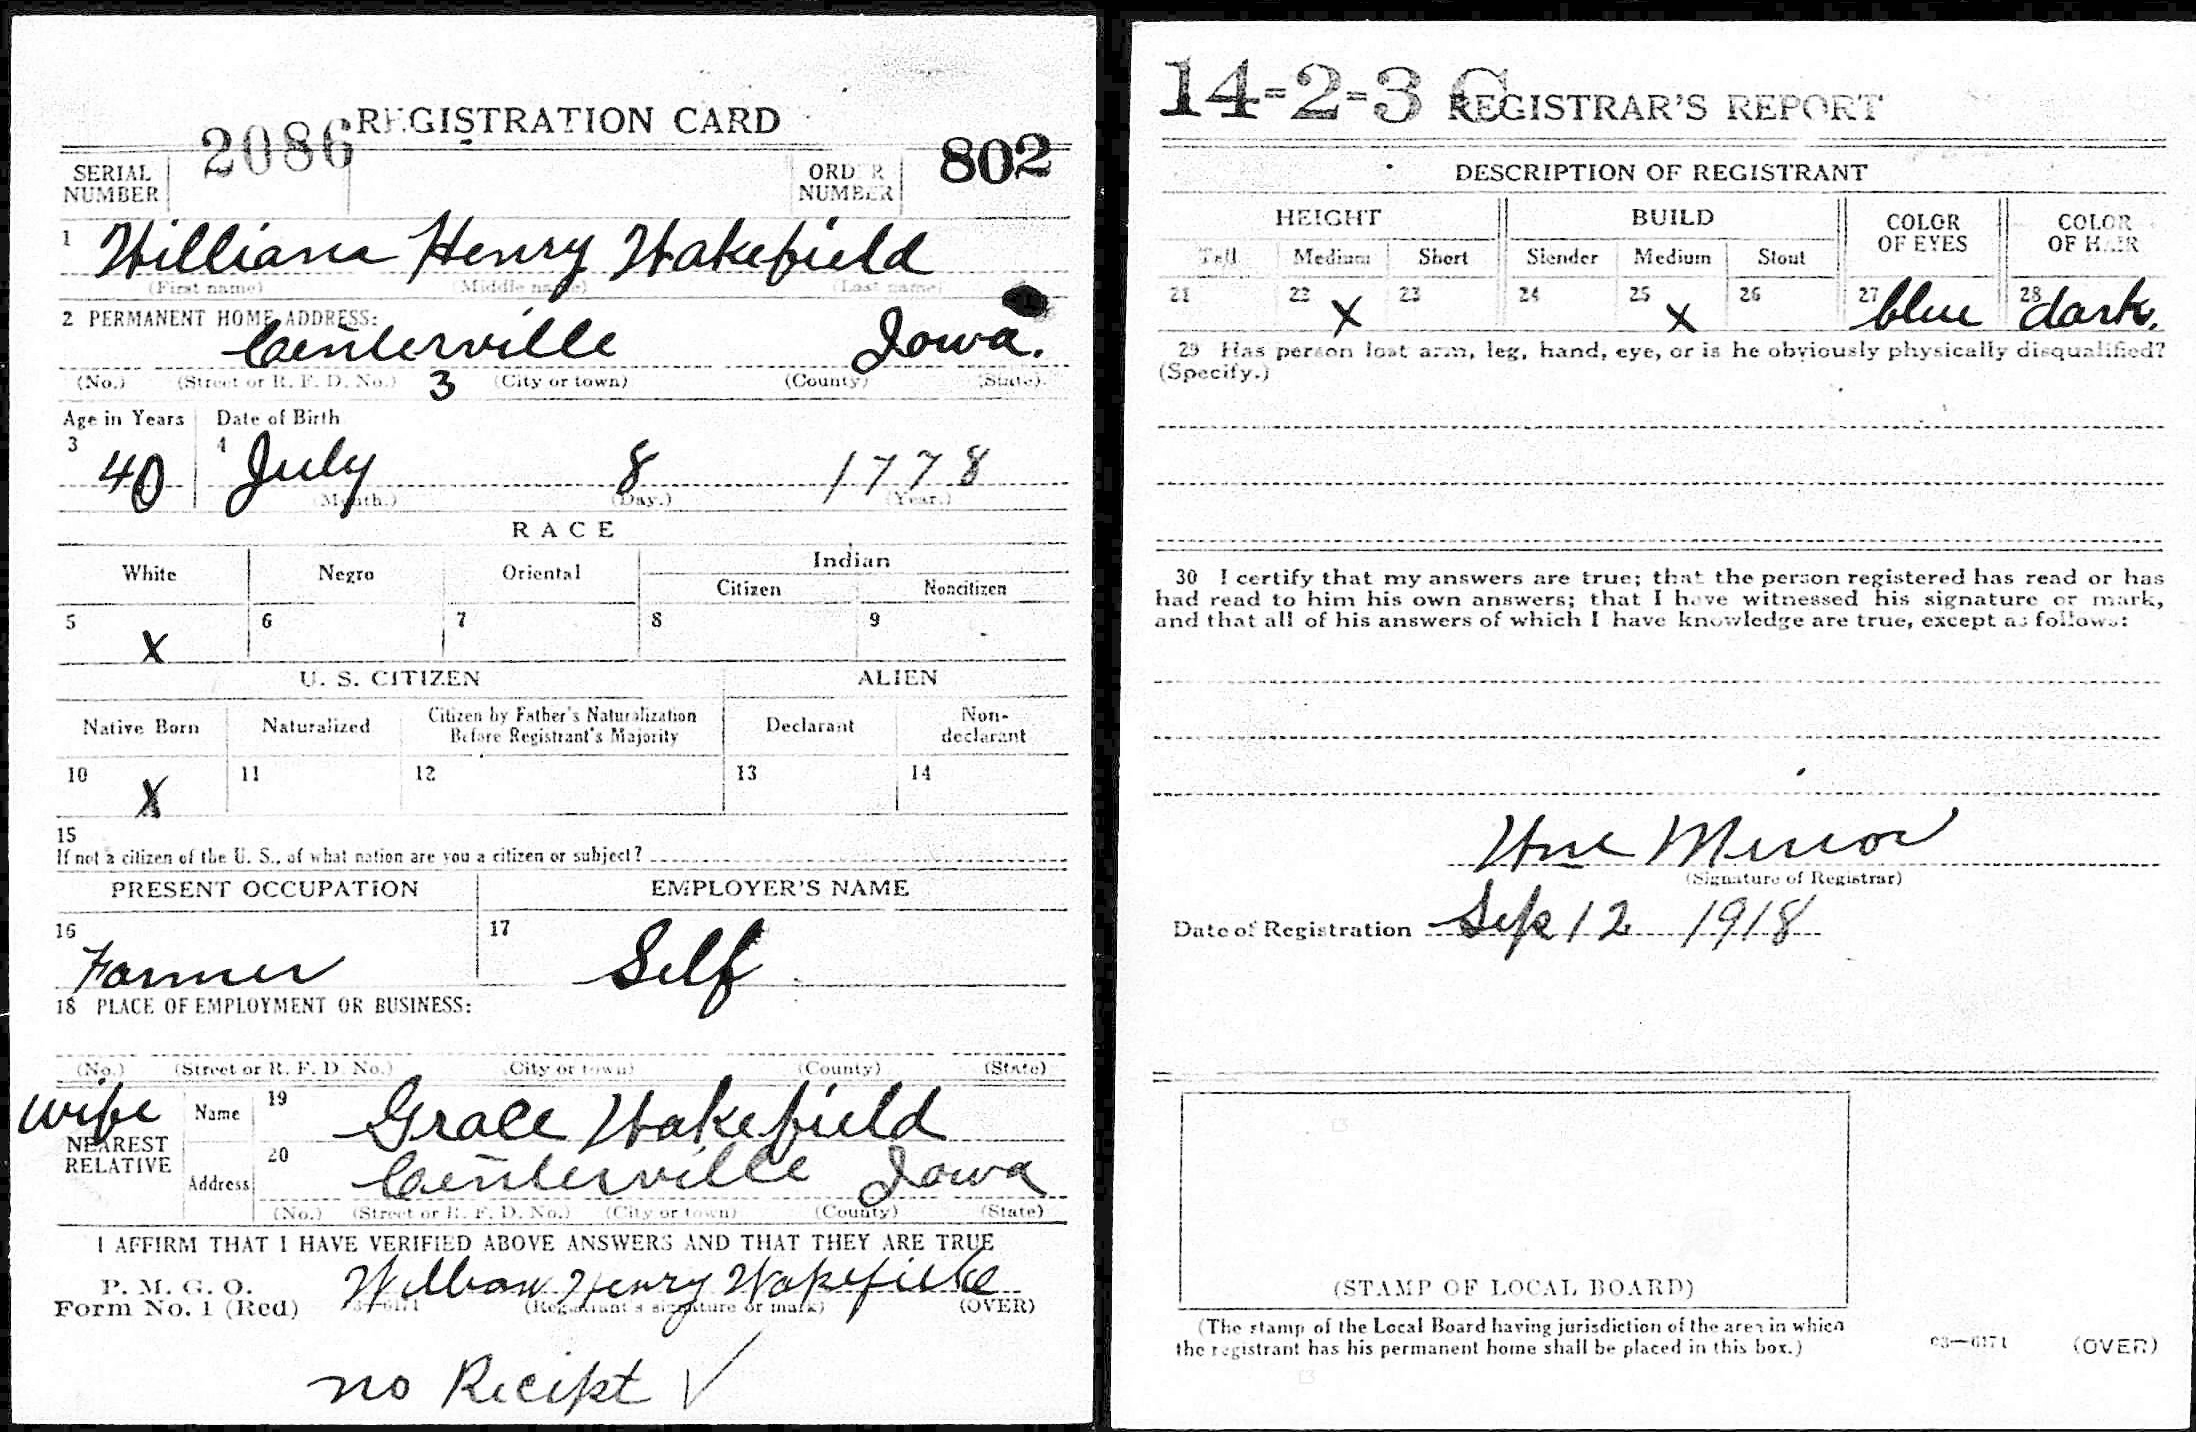 REGISTRATION CARD
SERIAL NUMBER 2086 ORDER NUMBER 802
1 William Henry Wakefield
(First name) (Middle name) (Last name)
2 PERMANENT HOME ADDRESS:
Centerville Iowa.
(No.) (Street or R. F. D. No.) 3 (City or town) (County) (State)
Age in Years Date of Birth
3 40 4 July 8 1778
(Month.) (Day.) (Year.)
RACE
White Negro Oriental Indian
Citizen Noncitizen
5 X 6 7 8 9
U. S. CITIZEN ALIEN
Native Born Naturalized Citizen by Father's Naturalization Before Registrant's Majority Declarant Non-declarant
10 X 11 12 13 14
15
If not a citizen of the U. S., of what nation are you a citizen or subject?
PRESENT OCCUPATION EMPLOYER'S NAME
16 Farmer 17 Self
18 PLACE OF EMPLOYMENT OR BUSINESS:
(No.) (Street or R. F. D. No.) (City or town) (County) (State)
wife
NEAREST RELATIVE
Name 19 Grace Wakefield
Address 20 Centerville Iowa
(No.) (Street or R. F. D. No.) (City or town) (County) (State)
I AFFIRM THAT I HAVE VERIFIED ABOVE ANSWERS AND THAT THEY ARE TRUE
P. M. G. O.
Form No. 1 (Red) William Henry Wakefield
03—6171 (Registrant's signature or mark) (OVER)
no Recipt ✓
14-2-3 C REGISTRAR'S REPORT
DESCRIPTION OF REGISTRANT
HEIGHT BUILD COLOR OF EYES COLOR OF HAIR
Tall Medium Short Slender Medium Stout
21 22 X 23 24 25 X 26 27 blue 28 dark.
29 Has person lost arm, leg, hand, eye, or is he obviously physically disqualified?
(Specify.)
30 I certify that my answers are true; that the person registered has read or has
had read to him his own answers; that I have witnessed his signature or mark,
and that all of his answers of which I have knowledge are true, except as follows:
Wm Minor
(Signature of Registrar)
Date of Registration Sep 12 1918
(STAMP OF LOCAL BOARD)
(The stamp of the Local Board having jurisdiction of the area in which
the registrant has his permanent home shall be placed in this box.)
03—6171 (OVER)